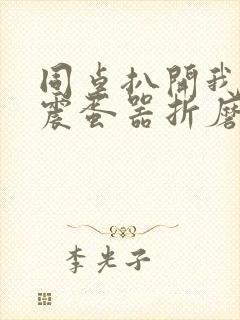 同桌扒開我
震蛋器折磨
李光子